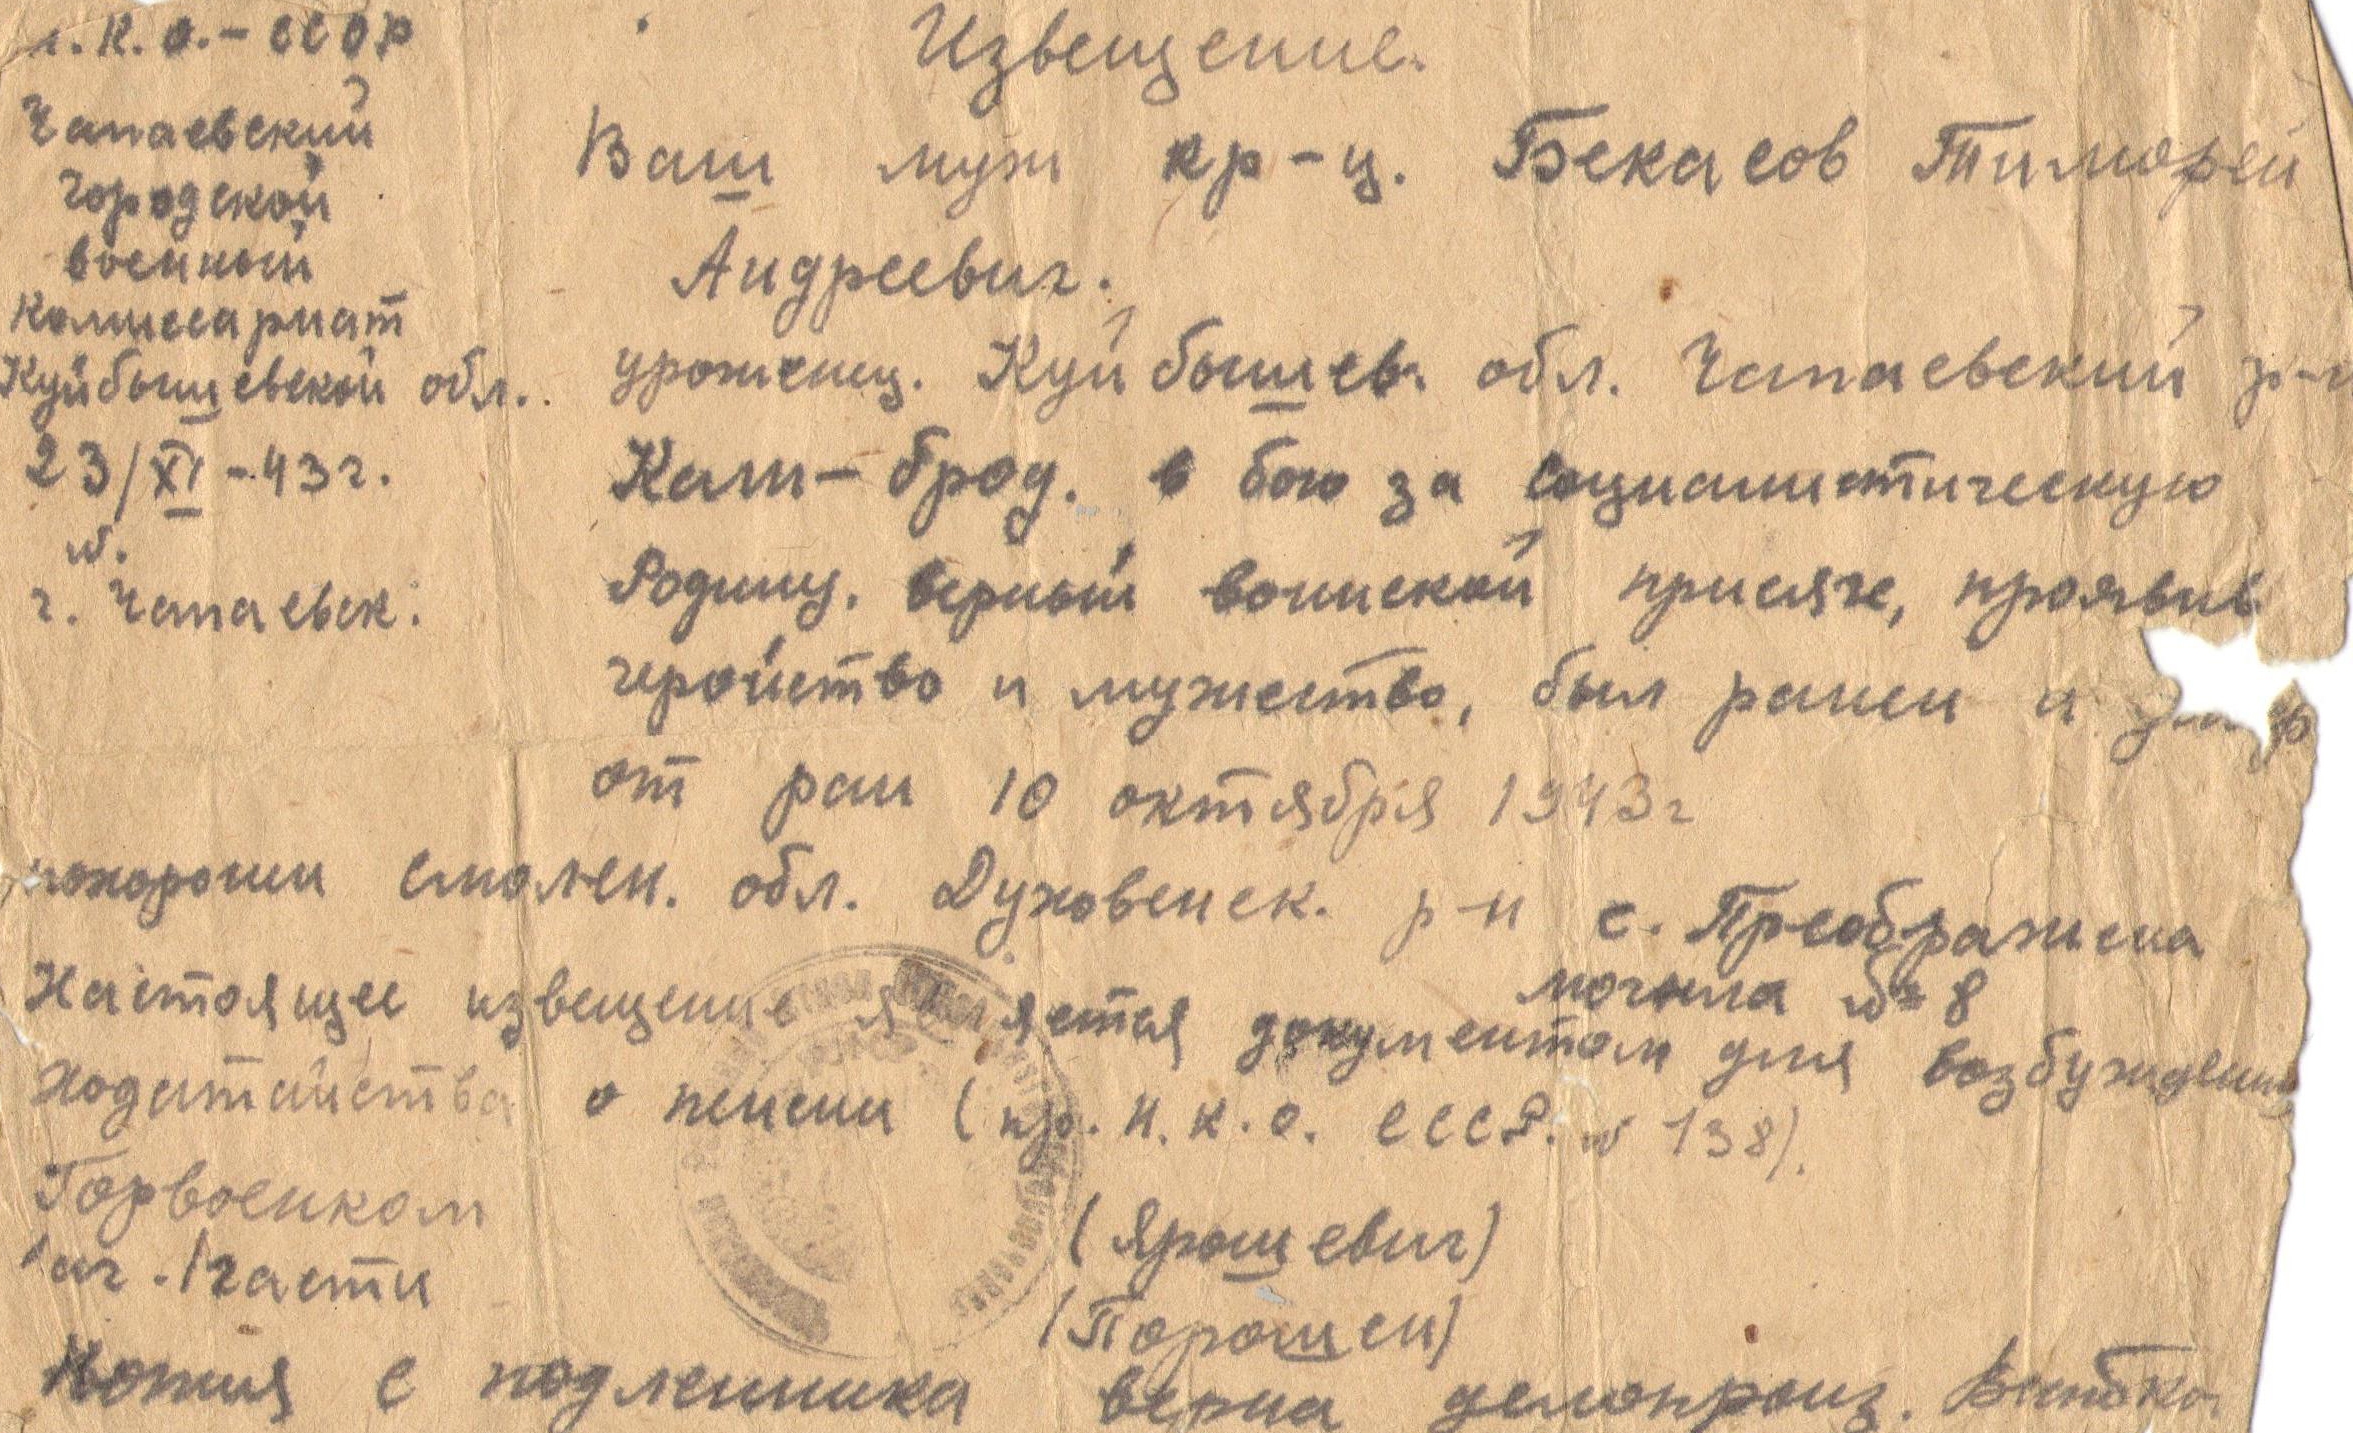 Н.К.О.-СССР
Чапаевский
городской
военный
комиссариат
Куйбышевской обл.
23/XI-43г.
N.
г. Чапаевск.
Извещение.
Ваш муж кр-ц. Бекасов Тимофей
Андреевич.
уроженец. Куйбышев. обл. Чапаевский р-н
Кали-брод. в бою за социалистическую
Родину. верный воинской присяге, проявив
геройство и мужество, был ранен и умер
от ран 10 октября 1943г
похоронен Смолен. обл. Духовенск. р-н с. Преображена
могила № 8
Настоящее извещение является документом для возбуждения
ходатайства о пенсии (пр. Н.К.О. СССР. N 138).
Горвоенком (Ярошевич)
Нач. 1 части (Порошен)
Копия с подленника верна делопроиз.